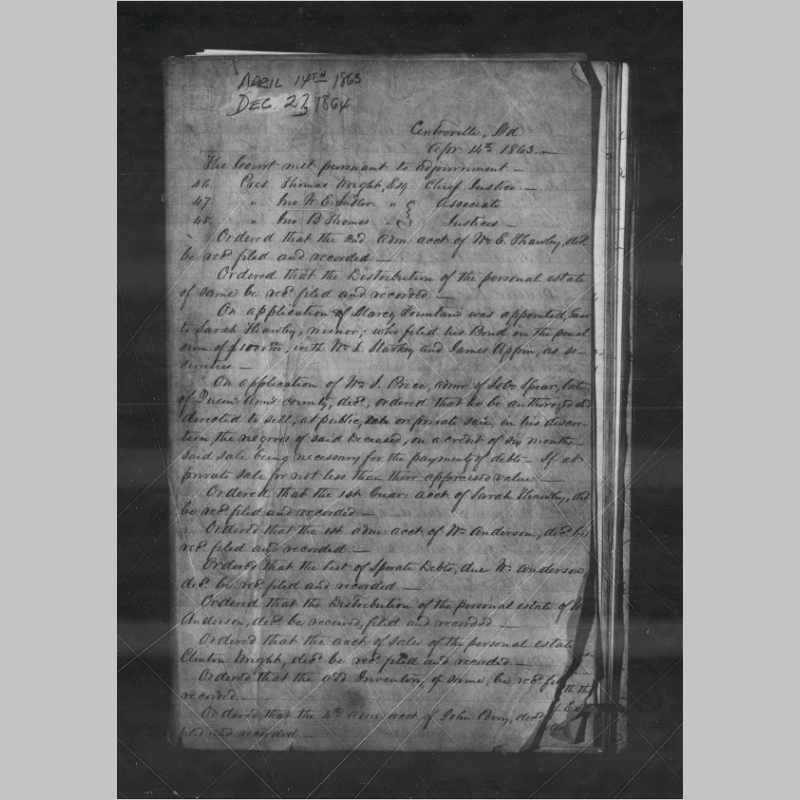 APRIL 14TH 1863
DEC. 27, 1864
Centreville, Md
Apr 14th 1863.—
The Court met pursuant to adjournment —
46. Pres. Thomas Wright, Esq Chief Justice —
47. " Jno W. E. Sudler " } Associate
48. " Jno B Thomas " } Justices —
Ordered that the 2nd adm. acct of Wm C. Thawley, decd
be recd filed and recorded —
Ordered that the Distribution of the personal estate
of same be recd filed and recorded —
On application of was appointed
to Sarah Thawley, minor; who filed his Bond in the penal
sum of with Wm and James as se-
curities —
On application of Wm J. Price, admr of Jobe Spear, late
of Queen Ann's county, decd, ordered that he be authorized and
directed to sell, at public, sale or private sale, in his discre-
tion the negroes of said Deceased, on a credit of six months
said sale being necessary for the payment of debts — If at
private sale for not less than their appraised value —
Ordered that the 1st Guar. acct of Sarah Thawley, decd
be recd filed and recorded —
Ordered that the 1st adm. acct of Wm Anderson, decd be
recd filed and recorded —
Ordered that the list of Sperate Debts, due Wm Anderson
decd be recd filed and recorded —
Ordered that the Distribution of the personal estate of
Anderson, decd be received, filed and recorded —
Ordered that the acct of sales of the personal estate
Clinton Wright, decd be recd filed and recorded —
Ordered that the add Inventory of same, be recd
recorded —
Ordered that the 4th adm acct of John Perry, decd
filed and recorded —